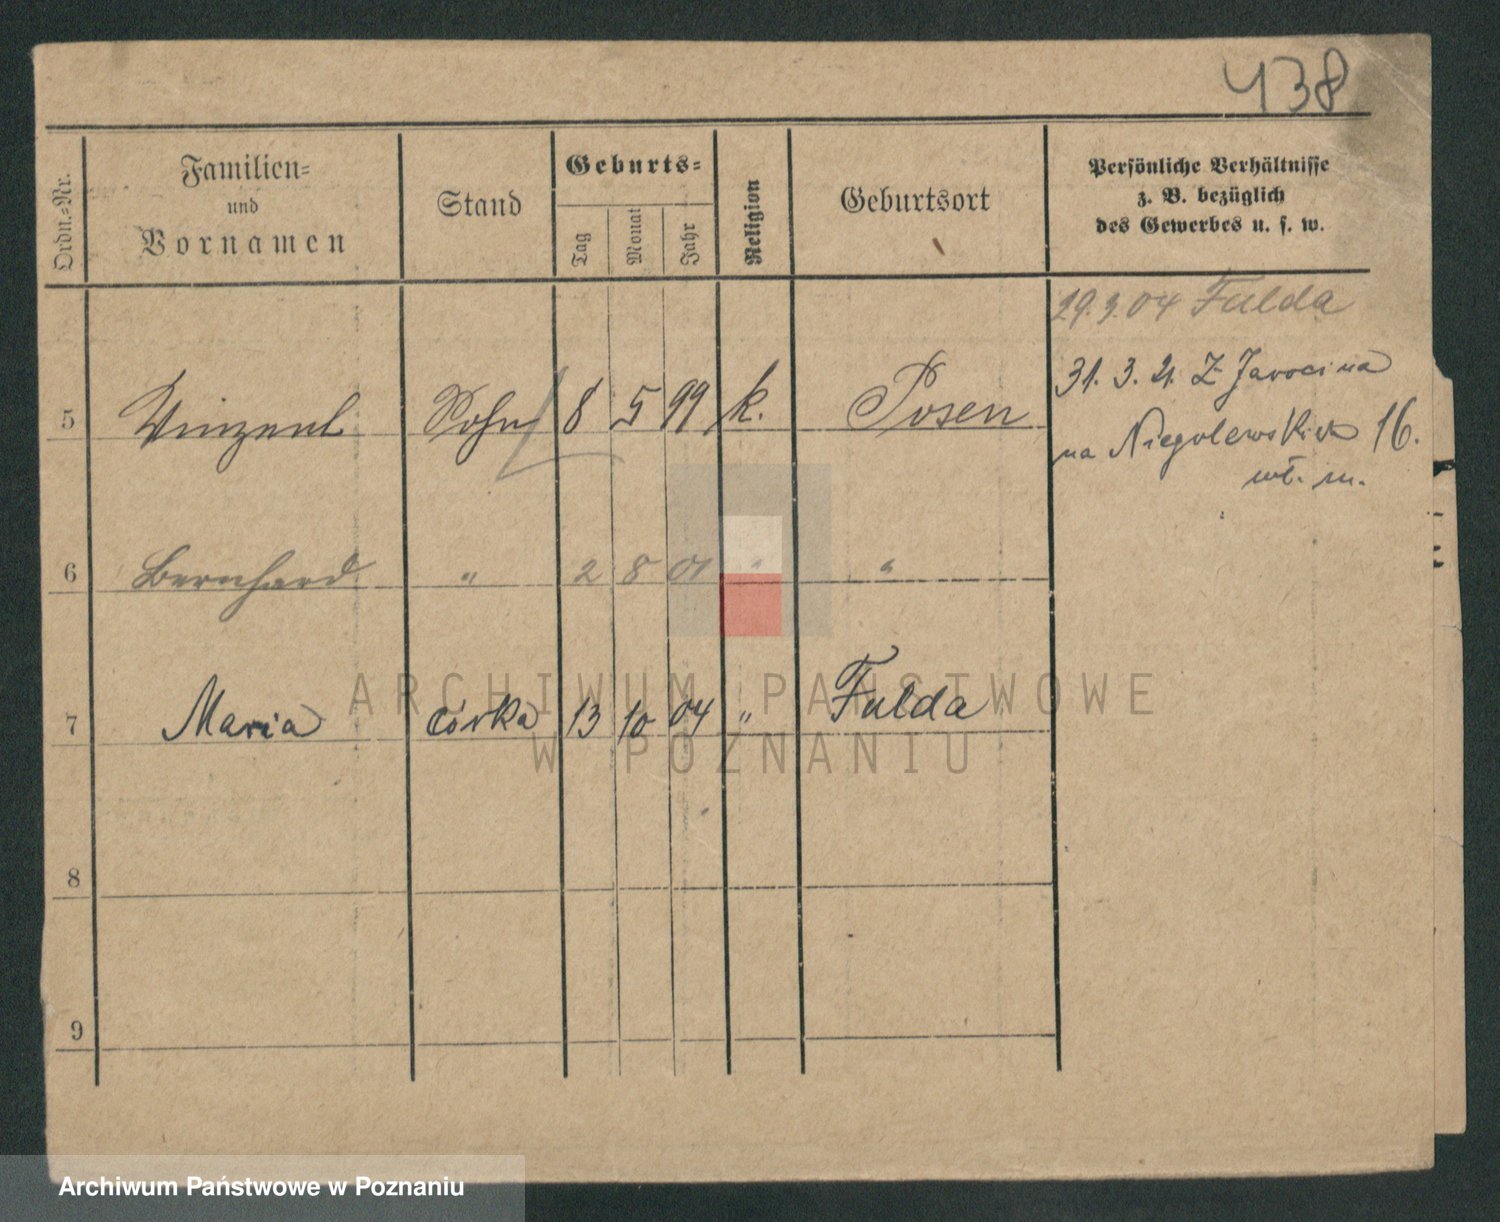 438
Ordn.-Nr.
Familien-
und
Vornamen
Stand
Geburts-
Tag
Monat
Jahr
Religion
Geburtsort
Persönliche Verhältnisse
z. B. bezüglich
des Gewerbes u. s. w.
29.3.04 Fulda
31. 3. 21. Z Jarocina
na Niegolewskich 16.
wł. m.
5 Vinzent Sohn 8 5 99 k. Posen
6 Bernhard " 2 8 01 " "
7 Maria córka 13 10 04 " Fulda
8
9
ARCHIWUM PAŃSTWOWE
W POZNANIU
Archiwum Państwowe w Poznaniu